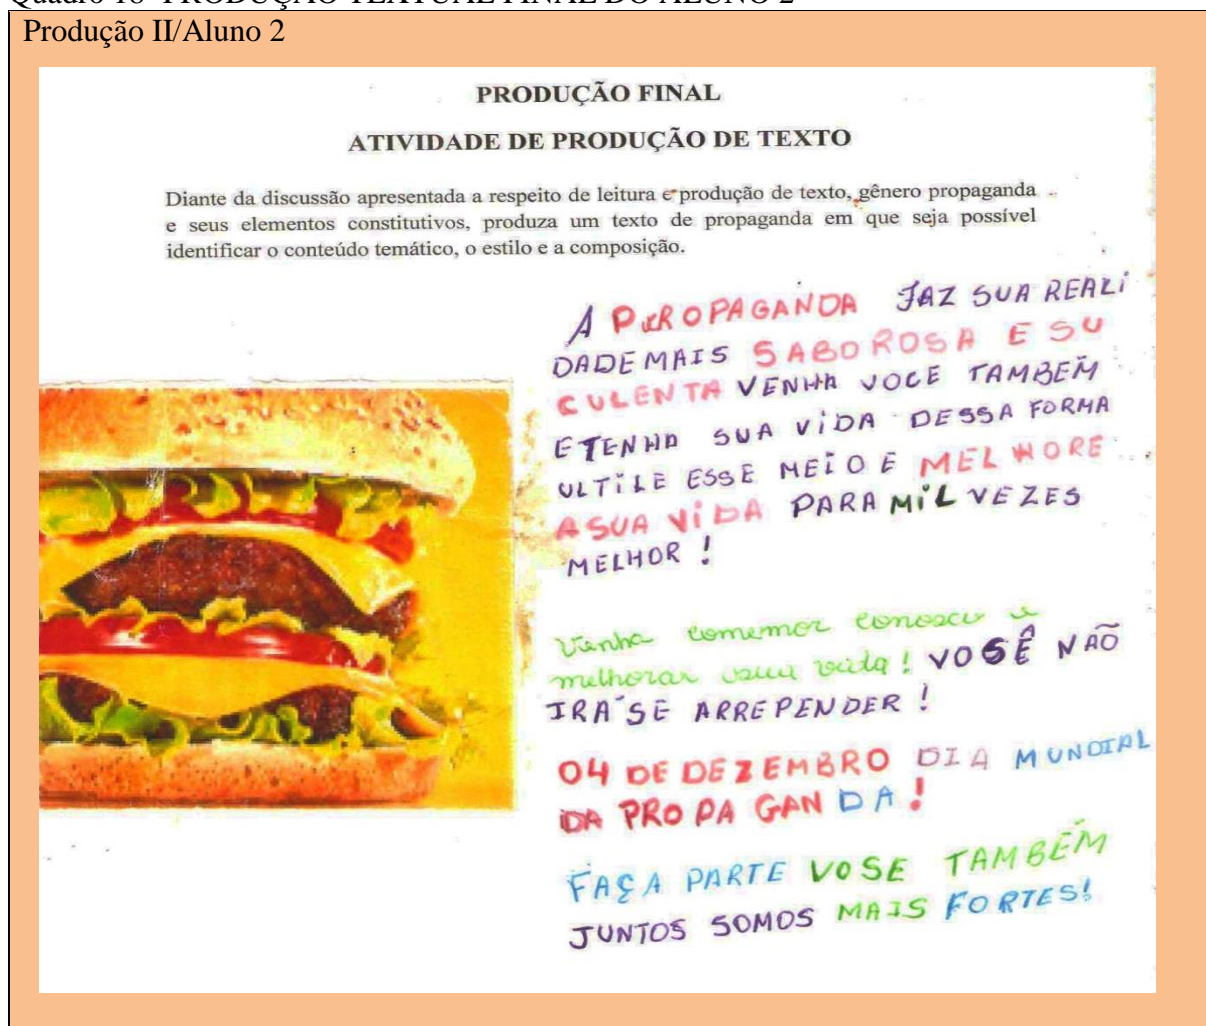 Quadro 18- PRODUÇÃO TEXTUAL FINAL DO ALUNO 2
Produção II/Aluno 2
PRODUÇÃO FINAL
ATIVIDADE DE PRODUÇÃO DE TEXTO
Diante da discussão apresentada a respeito de leitura e produção de texto, gênero propaganda
e seus elementos constitutivos, produza um texto de propaganda em que seja possível
identificar o conteúdo temático, o estilo e a composição.
A PROPAGANDA FAZ SUA REALI
DADE MAIS SABOROSA E SU
CULENTA VENHA VOCE TAMBÉM
E TENHA SUA ViDA DESSA FORMA
ULTiLE ESSE MEiO E MELHORE
A SUA ViDA PARA MiL VEZES
MELHOR !
Venha comemor conosco e
melhorar sua vida! VOSÊ NAÕ
IRA´SE ARREPENDER !
04 DE DEZEMBRO DIA MUNDIAL
DA PROPAGANDA!
FAÇA PARTE VOSE TAMBÉM
JUNTOS SOMOS MAIS FORTES!